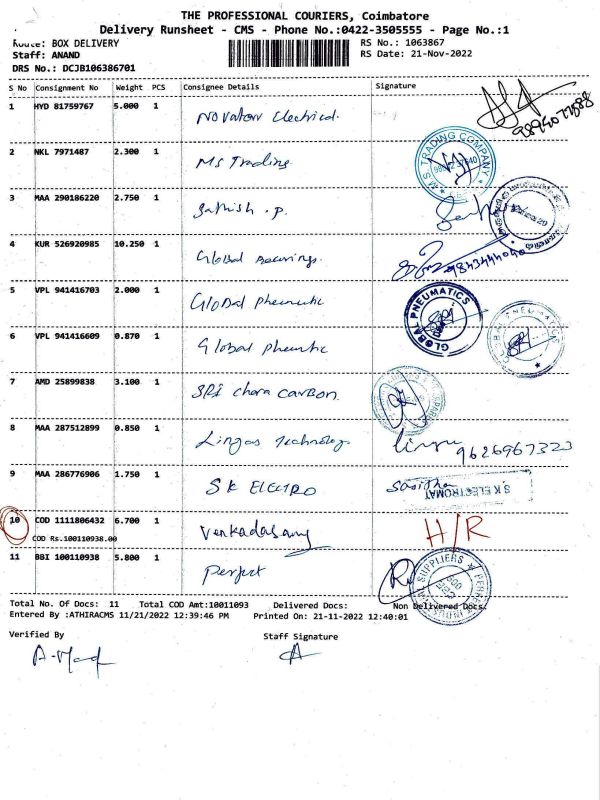 THE PROFESSIONAL COURIERS, Coimbatore
Delivery Runsheet - CMS - Phone No.:0422-3505555 - Page No.:1
Route: BOX DELIVERY
RS No.: 1063867
Staff: ANAND
RS Date: 21-Nov-2022
DRS No.: DCJB106386701
S No Consignment No Weight PCS Consignee Details Signature
1 HYD 81759767 5.000 1 Electrical
2 NKL 7971487 2.300 1 MS Trading
M.S. TRADING COMPANY
3 MAA 290186220 2.750 1 Sathish .P.
4 KUR 526920985 10.250 1 Global
5 VPL 941416703 2.000 1 Global
GLOBAL PNEUMATICS
6 VPL 941416609 0.870 1 Global
GLOBAL PNEUMATICS
7 AMD 25899838 3.100 1 SRI carbon
8 MAA 287512899 0.850 1 Lingas Technology
9626967323
9 MAA 286776906 1.750 1 SK ELECTRO Sasitha
S K ELECTROMAT
10 COD 1111806432 6.700 1 Venkadasamy H/R
COD Rs.100110938.00
11 BBI 100110938 5.800 1 Perfect
Total No. Of Docs: 11 Total COD Amt:10011093 Delivered Docs: Non Delivered Docs:
Entered By :ATHIRACMS 11/21/2022 12:39:46 PM Printed On: 21-11-2022 12:40:01
Verified By Staff Signature